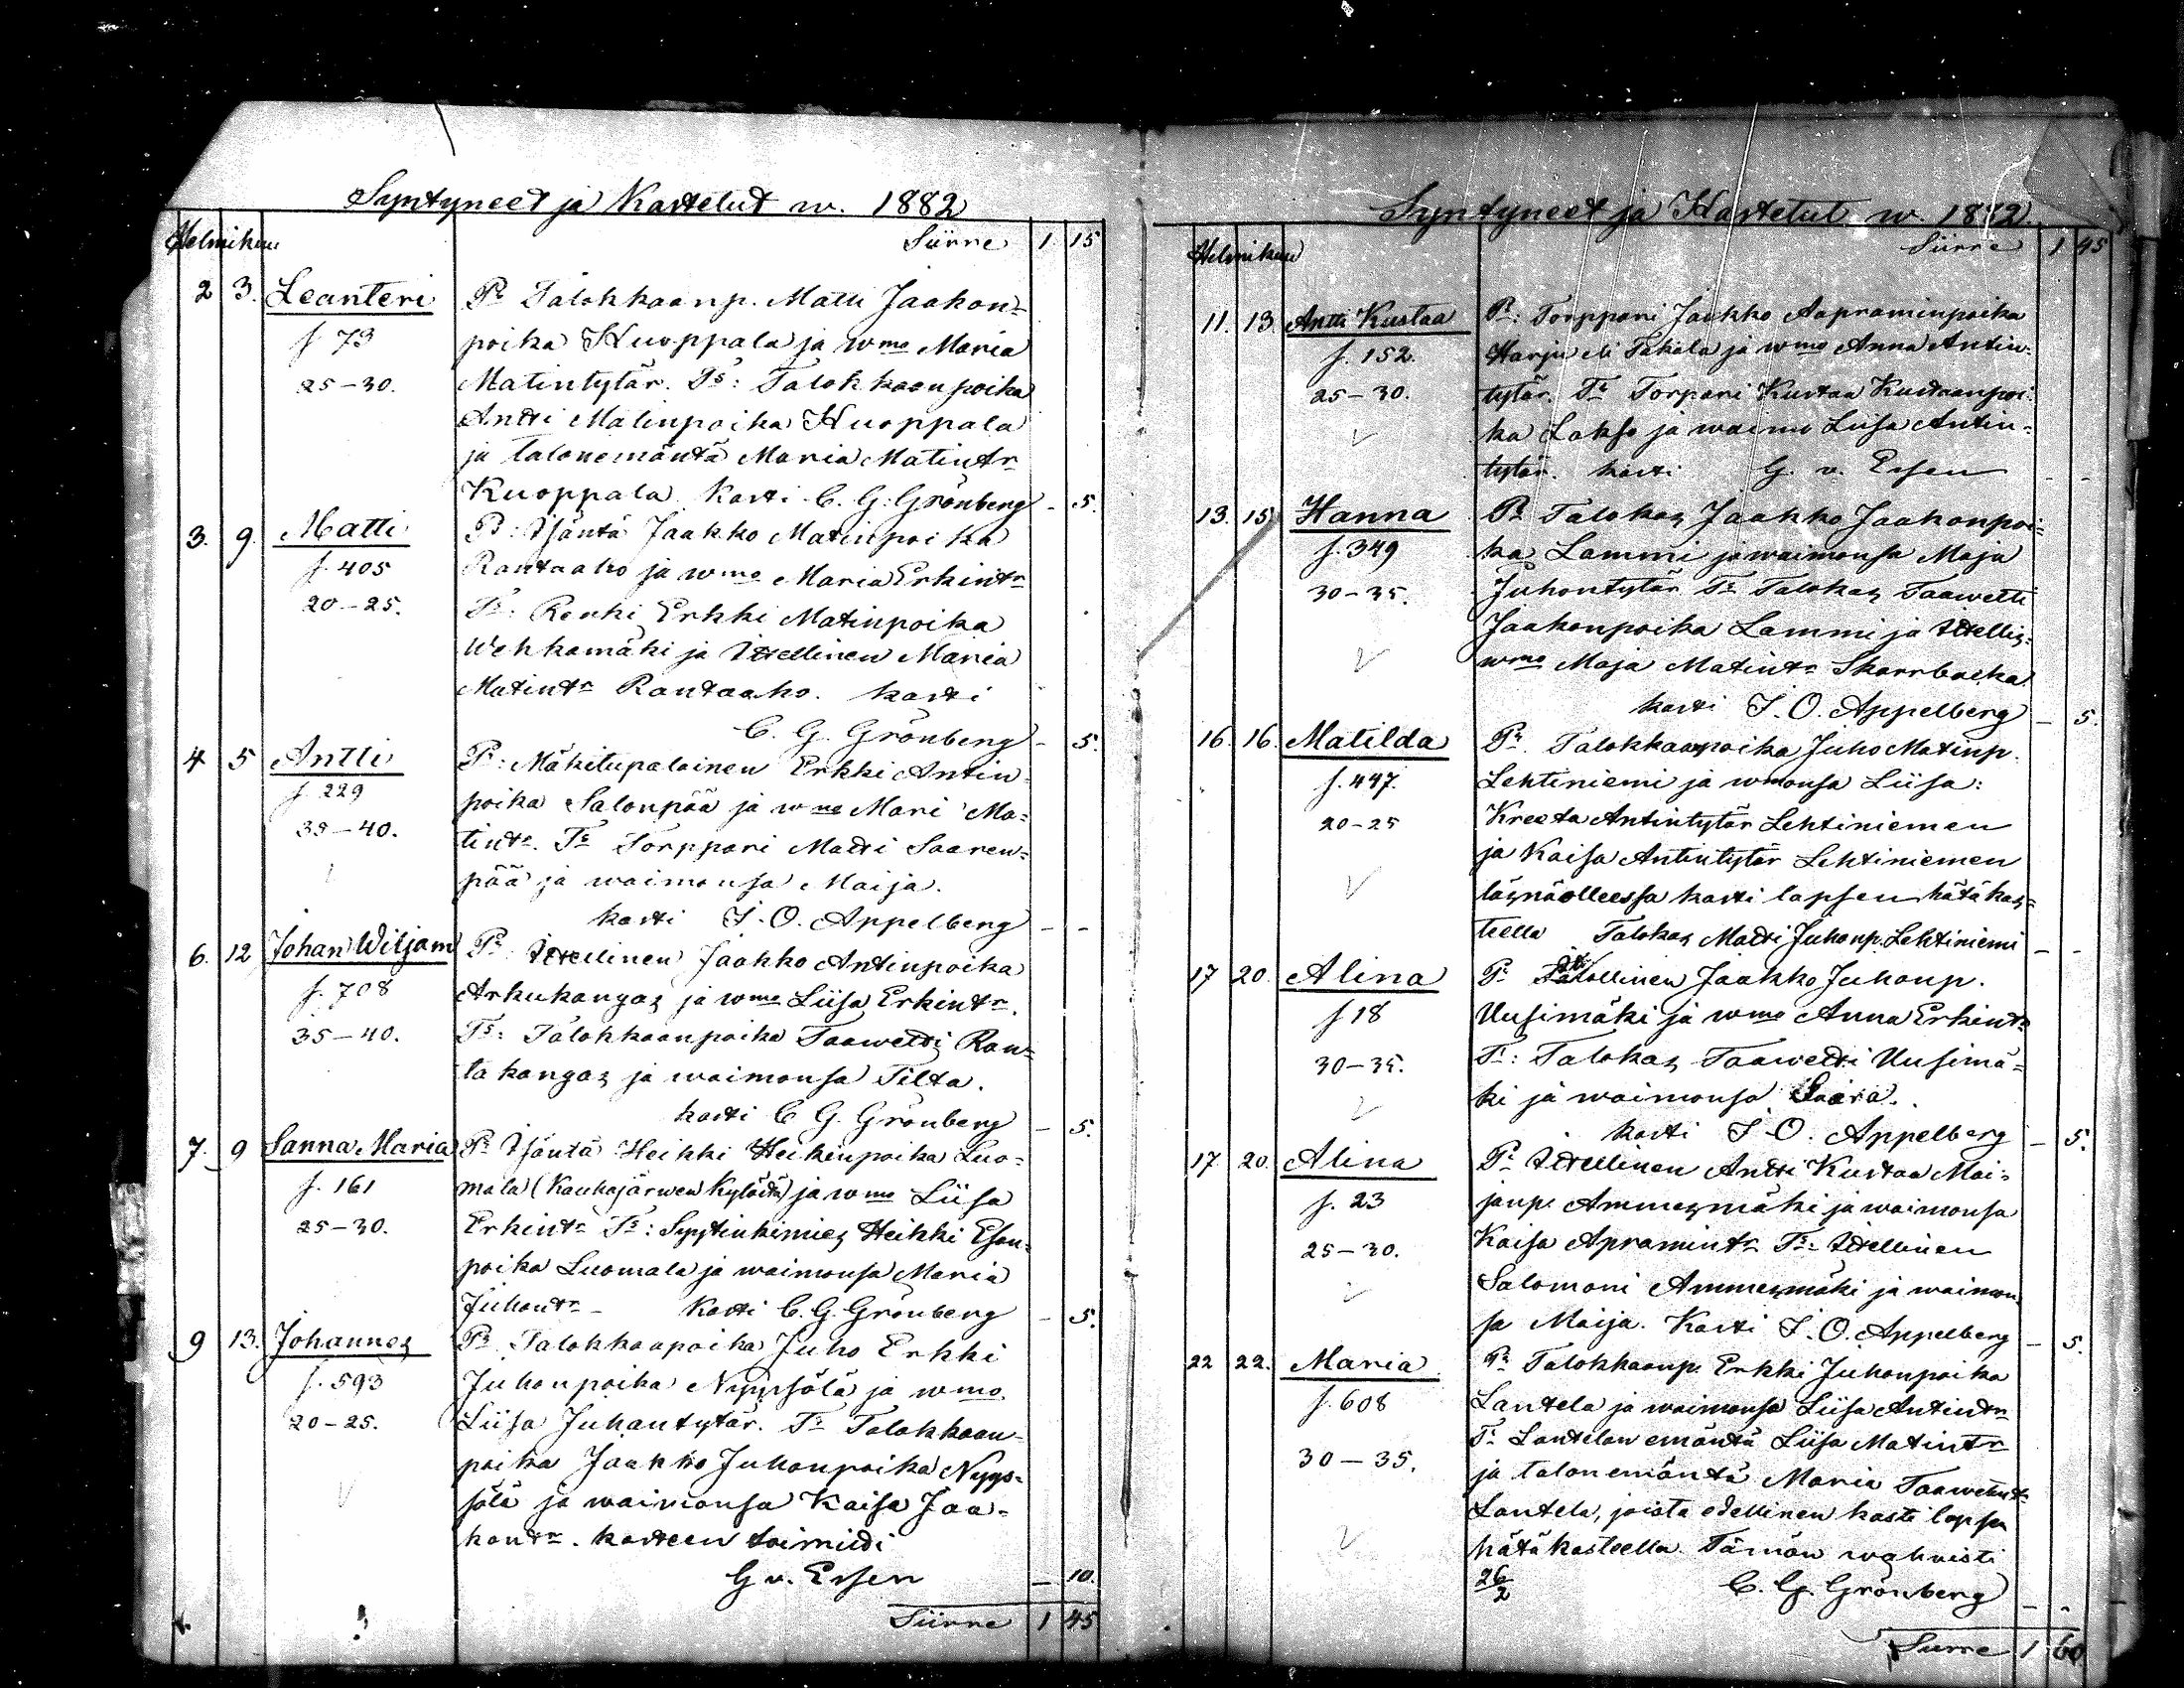 Syntyneet ja Kastetut w. 1882
Helmikuu Siirre 1 15
2 3. Leanteri Pr Talokkaanp. Matti Jaakon-
f 73 poika Kuoppala ja wmo Maria
25-30. Matintytär. Ts: Talokkaanpoika
Antti Matinpoika Kuoppala
ja talonemäntä Maria Matintr
Kuoppala. Kasti C. G. Grönberg - 5.
3. 9. Matti Pr: Isäntä Jaakko Matinpoika
f. 405 Rantaaho ja wmo Maria Erkintr
20-25. Ts: Renki Erkki Matinpoika
Wehkamäki ja Itsellinen Maria
Matintr Rantaaho. kasti
C. G. Grönberg - 5.
4 5 Antti Pr: Mäkitupalainen Erkki Antin-
f. 229 poika Salonpää ja wmo Mari Ma-
35-40. tintr. Ts Torppari Matti Saaren-
pää ja waimonsa Maija.
kasti I. O. Appelberg - -
6. 12 Johan Wiljam Pr Itsellinen Jaakko Antinpoika
f. 708 Arkukangas ja wmo Liisa Erkintr.
35-40. Ts: Talokkaanpoika Taawetti Ran-
takangas ja waimonsa Tilta.
kasti C G. Grönberg - 5.
7. 9 Sanna Maria Pr Isäntä Heikki Heikinpoika Luo-
f. 161 mala (Kauhajärwen Kylästä) ja wmo Liisa
25-30. Erkintr Ts: Syytinkimies Heikki Esan-
poika Luomala ja waimonsa Maria
Juhontr - Kasti C. G. Grönberg - 5.
9 13. Johannes Pr Talokkaapoika Juho Erkki
f. 593 Juhonpoika Nyyssölä ja wmo
20-25. Liisa Juhontytär. Ts Talokkaan-
poika Jaakko Juhonpoika Nyys-
sölä ja waimonsa Kaisa Jaa-
kontr. kasteen toimitti
G v. Essen - 10.
Siirre 1 45
Syntyneet ja Kastetut w. 1882
Helmikuu Siirre 1 45
11. 13. Antti Kustaa Pr: Torppari Jaakko Aapraminpoika
f. 152. Harju eli Takala ja wmo Anna Antin-
25-30. tytär. Ts Torpari Kustaa Kustaanpoi-
ka Lakso ja waimo Liisa Antin-
tytär. kasti G. v. Essen - -
13. 15. Hanna Pr Talokas Jaakko Jaakonpoi-
f. 349 ka Lammi ja waimonsa Maja
30-35. Juhontytär Ts Talokas Taawetti
Jaakonpoika Lammi ja Itsellis-
wmo Maja Matintr Skarrbacka.
kasti I. O. Appelberg - 5.
16. 16. Matilda Pr. Talokkaanpoika Juho Matinp.
f. 447. Lehtiniemi ja wmonsa Liisa:
20-25 Kreeta Antintytär Lehtiniemen
ja Kaisa Antintytär Lehtiniemen
läsnäolleessa kasti lapsen hätäkas-
teella Talokas Matti Juhonp. Lehtiniemi - -
17 20. Alina Pr Jaakko Juhonp.
f 18 Uusimäki ja wmo Anna Erkintr
30-35. Ts: Talokas Taawetti Uusimä-
ki ja waimonsa Saara.
kasti I. O. Appelberg - 5.
17. 20. Alina Pr Itsellinen Antti Kustaa Mai-
f. 23 janp. Ammesmäki ja waimonsa
25-30. Kaisa Apramintr Ts: Itsellinen
Salomoni Ammesmäki ja waimon-
sa Maija. Kasti I. O. Appelberg - 5.
22 22. Maria Pr Talokkaanp. Erkki Juhonpoika
f. 608 Lantela ja waimonsa Liisa Antintr
Ts Lantelan emäntä Liisa Matintr
30-35. ja talonemäntä Maria Taawetintr
Lantela, joista edellinen kasti lapsen
hätäkasteella. Tämän wahwisti
26/2 C. G. Grönberg - -
Siirre 1 60